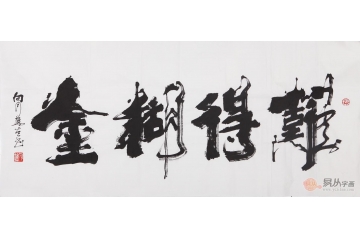 難得糊塗
易从字画